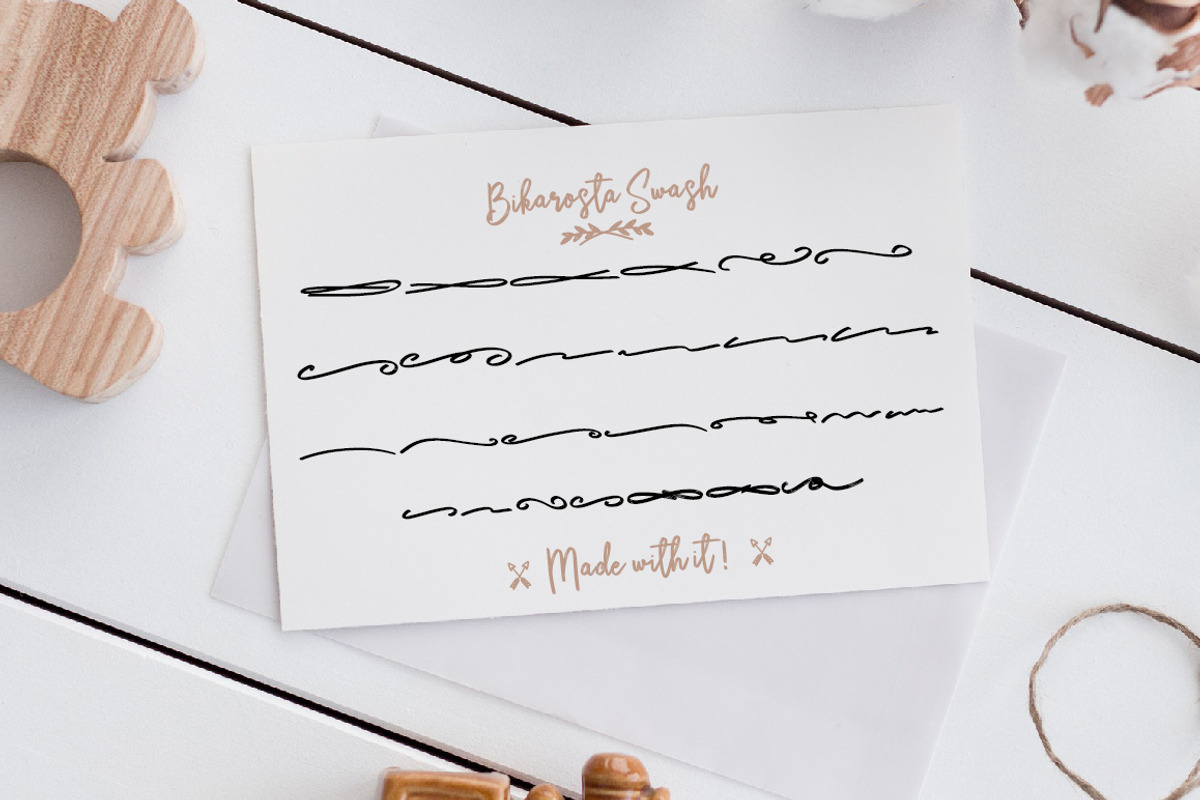 Bikarosta Swash
Made with it!